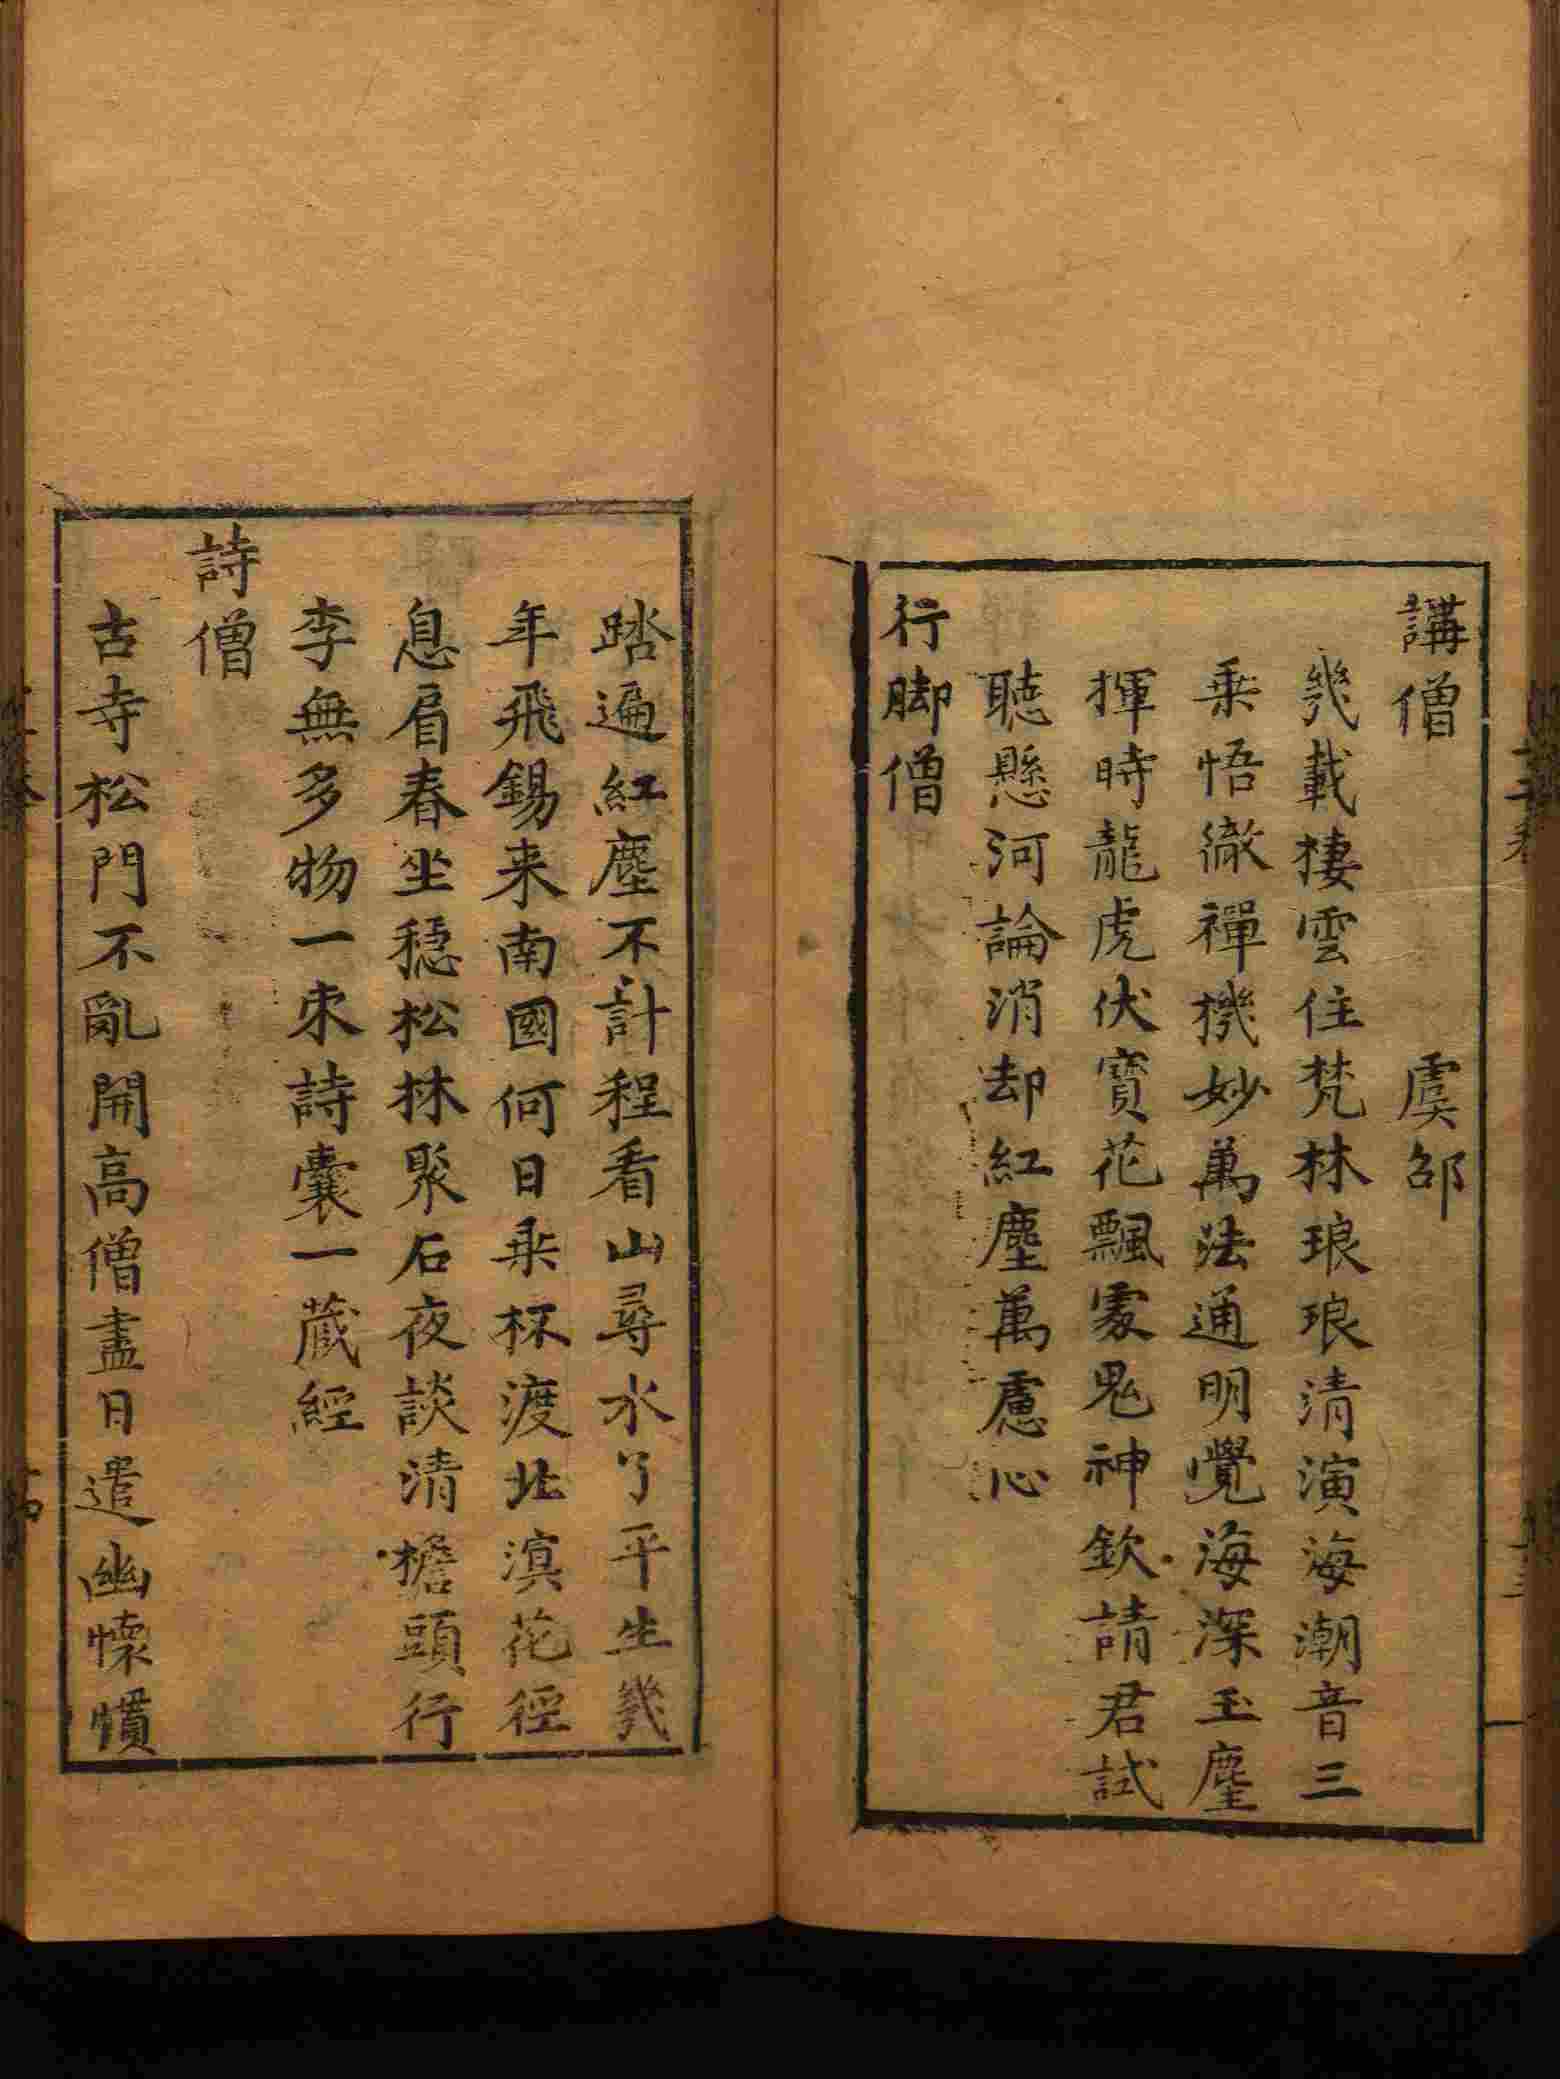 講僧　虞邵
幾載棲雲住梵林琅琅清演海潮音三
乗悟徹禪機妙萬法通明覺海深玉麈
揮時龍虎伏寳花飄處鬼神欽請君試
聴懸河論消却紅塵萬慮心
行脚僧
踏遍紅塵不計程看山尋水了平生幾
年飛錫来南國何日乗杯渡北溟花徑
息肩春坐穏松林聚石夜談清檐頭行
李無多物一束詩囊一蔵經
詩僧
古寺松門不亂開高僧盡日遣幽懐慣